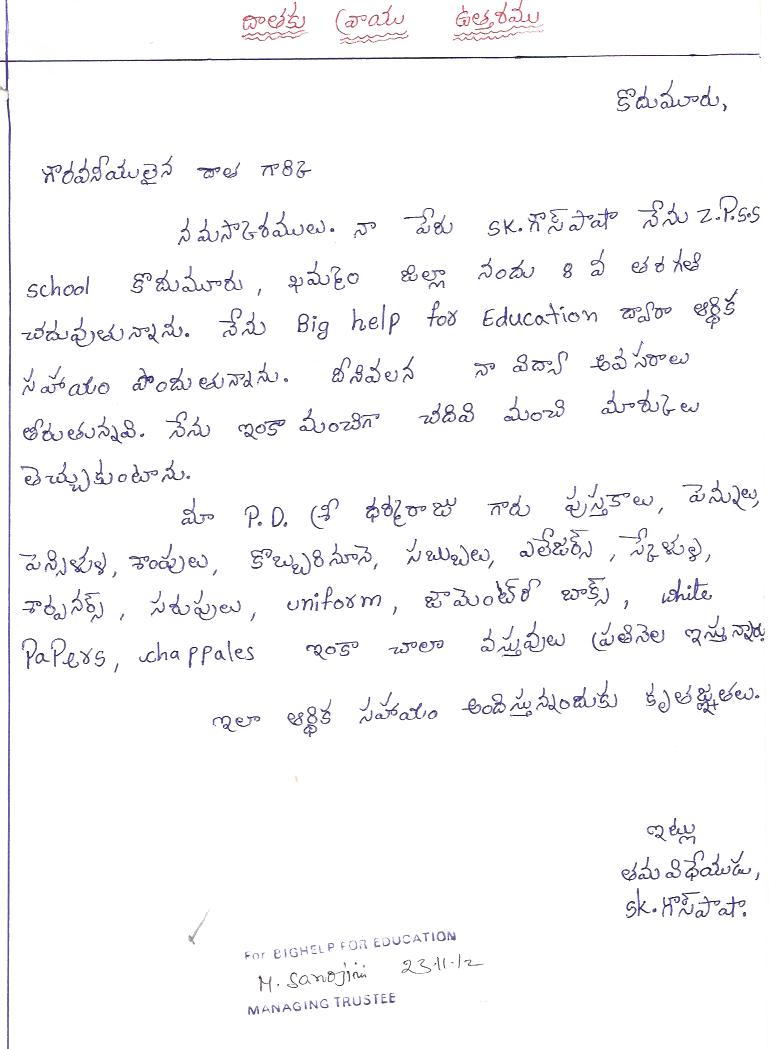 దాతకు వ్రాయు ఉత్తరము
కొదుమూరు,
గౌరవనీయులైన దాత గారికి
నమస్కారములు. నా పేరు SK.గౌస్‌పాషా నేను Z.P.S.S
school కొదుమూరు, ఖమ్మం జిల్లా నందు 8 వ తరగతి
చదువుతున్నాను. నేను Big help for Education ద్వారా ఆర్థిక
సహాయం పొందుతున్నాను. దీనివలన నా విద్యా అవసరాలు
తీరుతున్నవి. నేను ఇంకా మంచిగా చదివి మంచి మార్కులు
తెచ్చుకుంటాను.
మా P.D. శ్రీ ధర్మరాజు గారు పుస్తకాలు, పెన్నులు,
పెన్సిళ్ళు, శాంపులు, కొబ్బరినూనె, సబ్బులు, ఎలేజర్స్, స్కేళ్ళు,
శార్పనర్స్, సరుపులు, uniform, జామెంట్రీ బాక్స్, white
PaPers, chappales ఇంకా చాలా వస్తువులు ప్రతినెల ఇస్తున్నారు.
ఇలా ఆర్థిక సహాయం అందిస్తున్నందుకు కృతజ్ఞతలు.
ఇట్లు
తమ విధేయుడు,
SK.గౌస్‌పాషా.
For BIGHELP FOR EDUCATION
M. Sarojini 23-11-12
MANAGING TRUSTEE